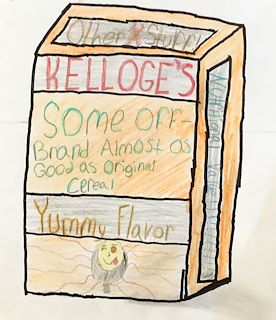 Other Stuff
KELLOGE'S
Some OFF-
Brand Almost as
Good as Original
Cereal
Yummy Flavor